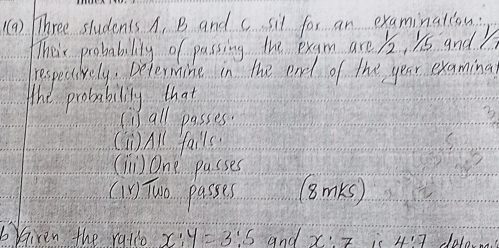 1(a) Three students A, B and C sit for an examination.
Their probability of passing the exam are 1/2, 1/5 and
respectively. Determine in the end of the year examinat
the probability that
(i) all passes.
(ii) All fails.
(iii) One passes
(iv) Two passes (8mks)
b) Given the ratio x:y = 3:5 and x:z is 4:7 determ